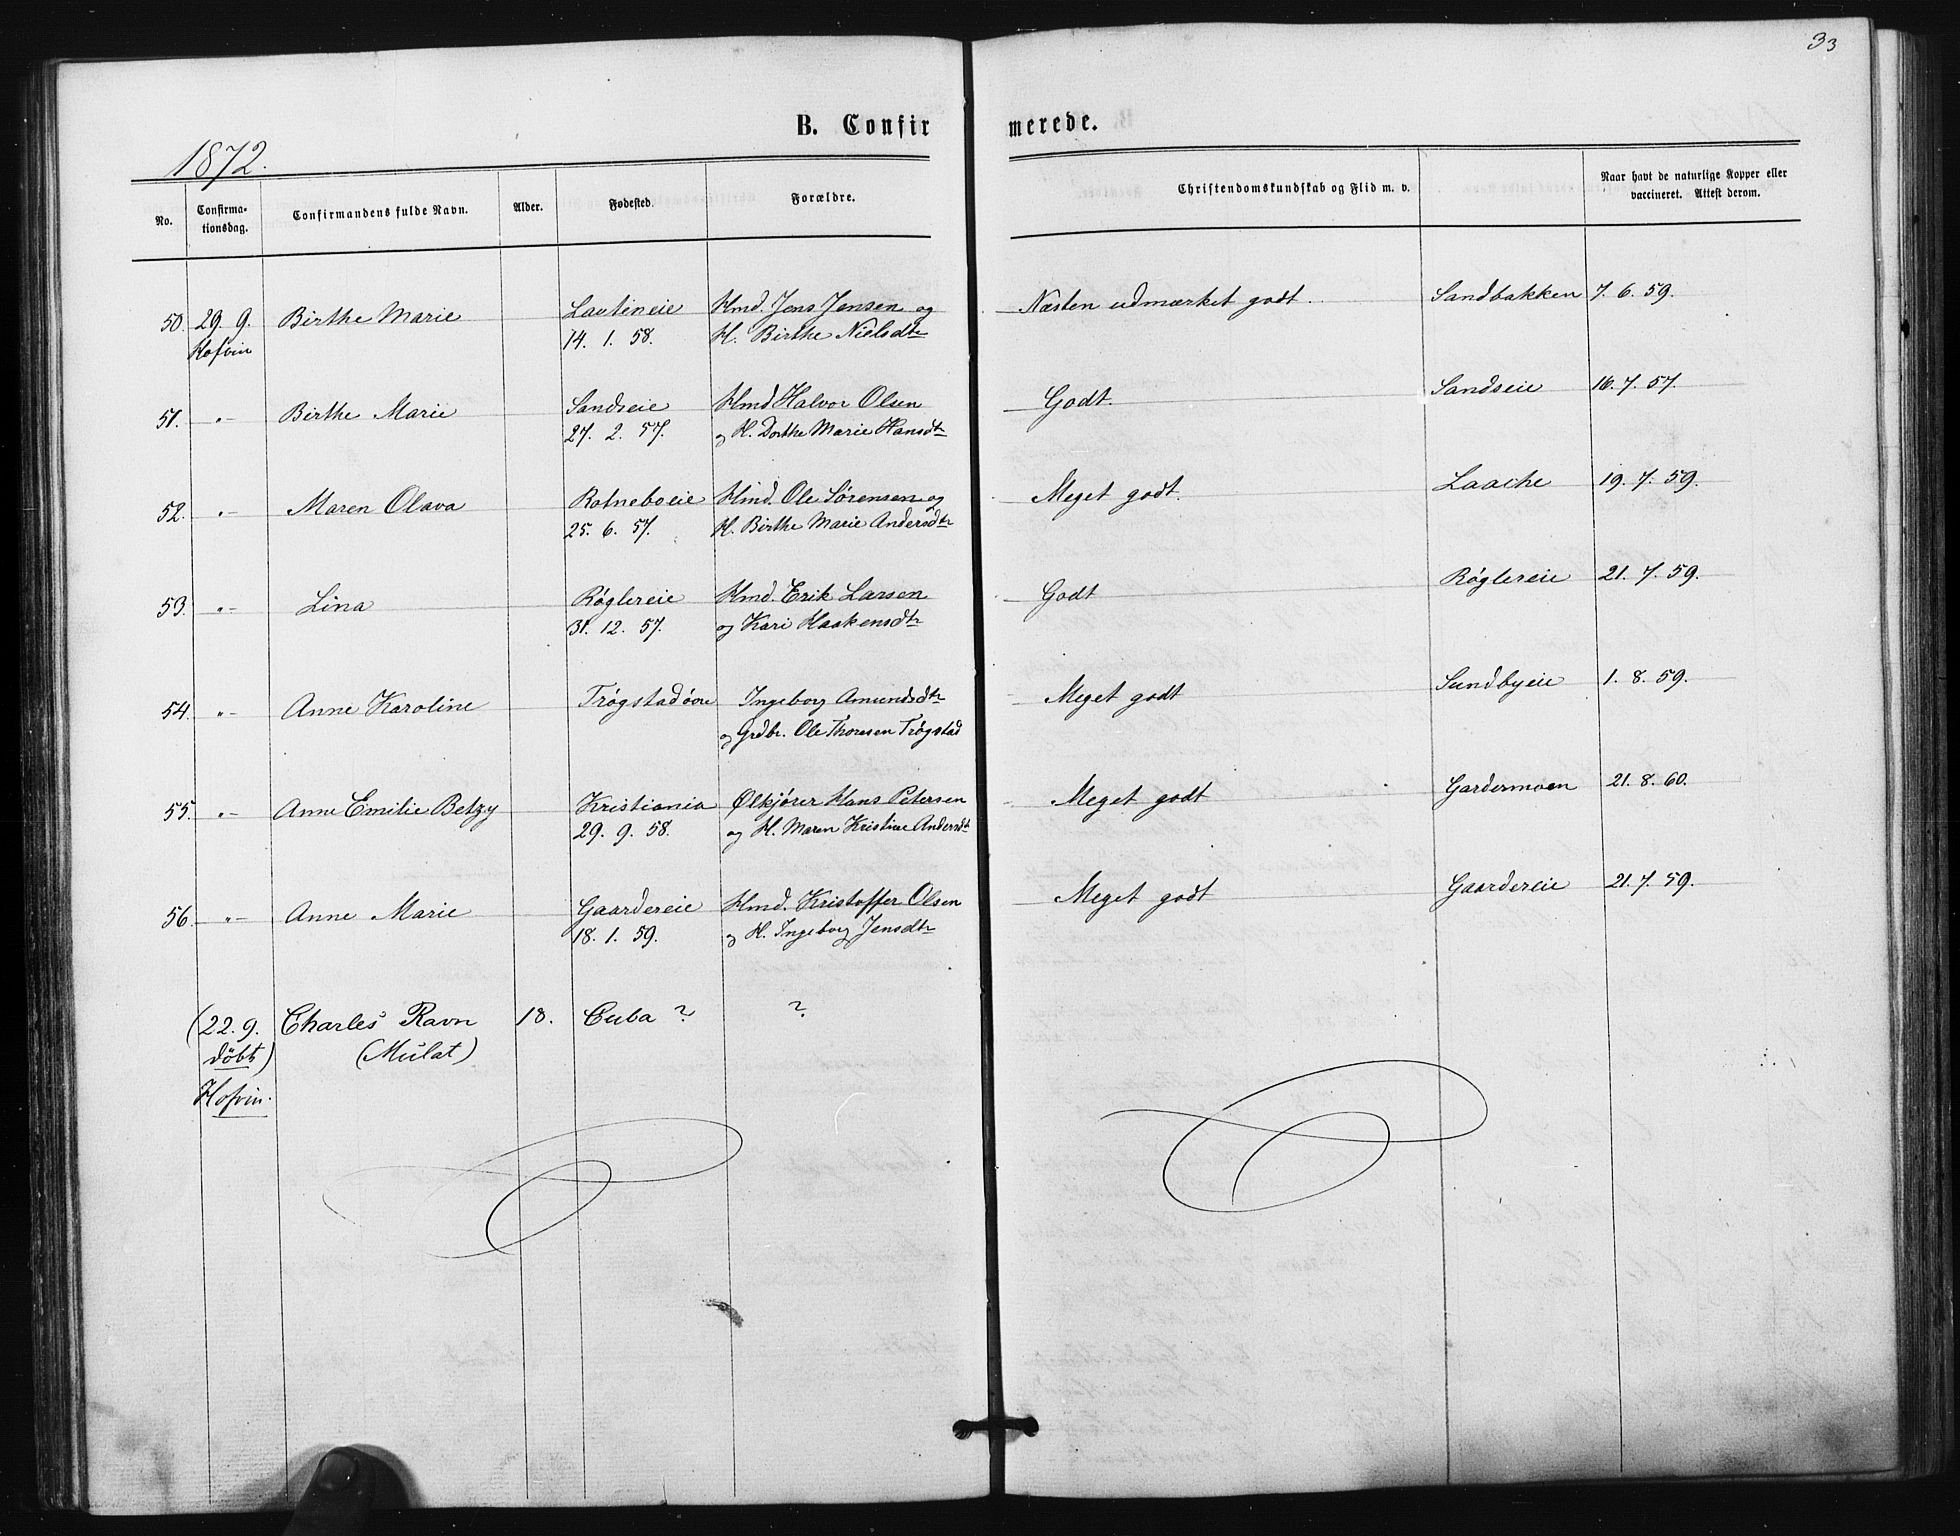 33
B. Confirmerede.
1872.
No. Confirmationsdag. Confirmandens fulde Navn. Alder. Fødested. Forældre. Christendomskundskab og Flid m. v. Naar havt de naturlige Kopper eller vaccineret. Attest derom.
50. 29. 9. Birthe Marie Lautineie Hmd. Jens Jensen og Næsten udmærket godt. Sandbakken 7. 6. 59.
Hofvin 14. 1. 58. H. Birthe Nielsdtr
51. -"- Birthe Marie Sandseie Hmd Halvor Olsen Godt. Sandseie 16. 7. 57.
27. 2. 57. og H. Dorthe Marie Hansdtr
52. -"- Maren Olava Rotneboeie Hmd. Ole Sørensen og Meget godt. Laache 19. 7. 59.
25. 6. 57. H. Birthe Marie Andersdtr
53. -"- Lina Røglereie Hmd. Erik Larsen Godt Røglereie 21. 7. 59.
31. 12. 57. og Kari Haakensdtr
54. -"- Anne Karoline Trøgstadøvre Ingeborg Amundsdtr Meget godt Sundbyeie 1. 8. 59.
og Grdbr. Ole Thoresen Trøgstad
55. -"- Anne Emilie Betzy Kristiania Ølkjører Hans Petersen Meget godt Gardermoen 21. 8. 60.
29. 9. 58. og H. Maren Kristine Andersdtr
56. -"- Anne Marie Gaardereie Hmd. Kristoffer Olsen Meget godt Gaardereie 21. 7. 59.
18. 1. 59. og H. Ingeborg Jensdtr
(22. 9. Charles Ravn 18. Cuba ? ?
döbt) (Mulat)
Hofvin.